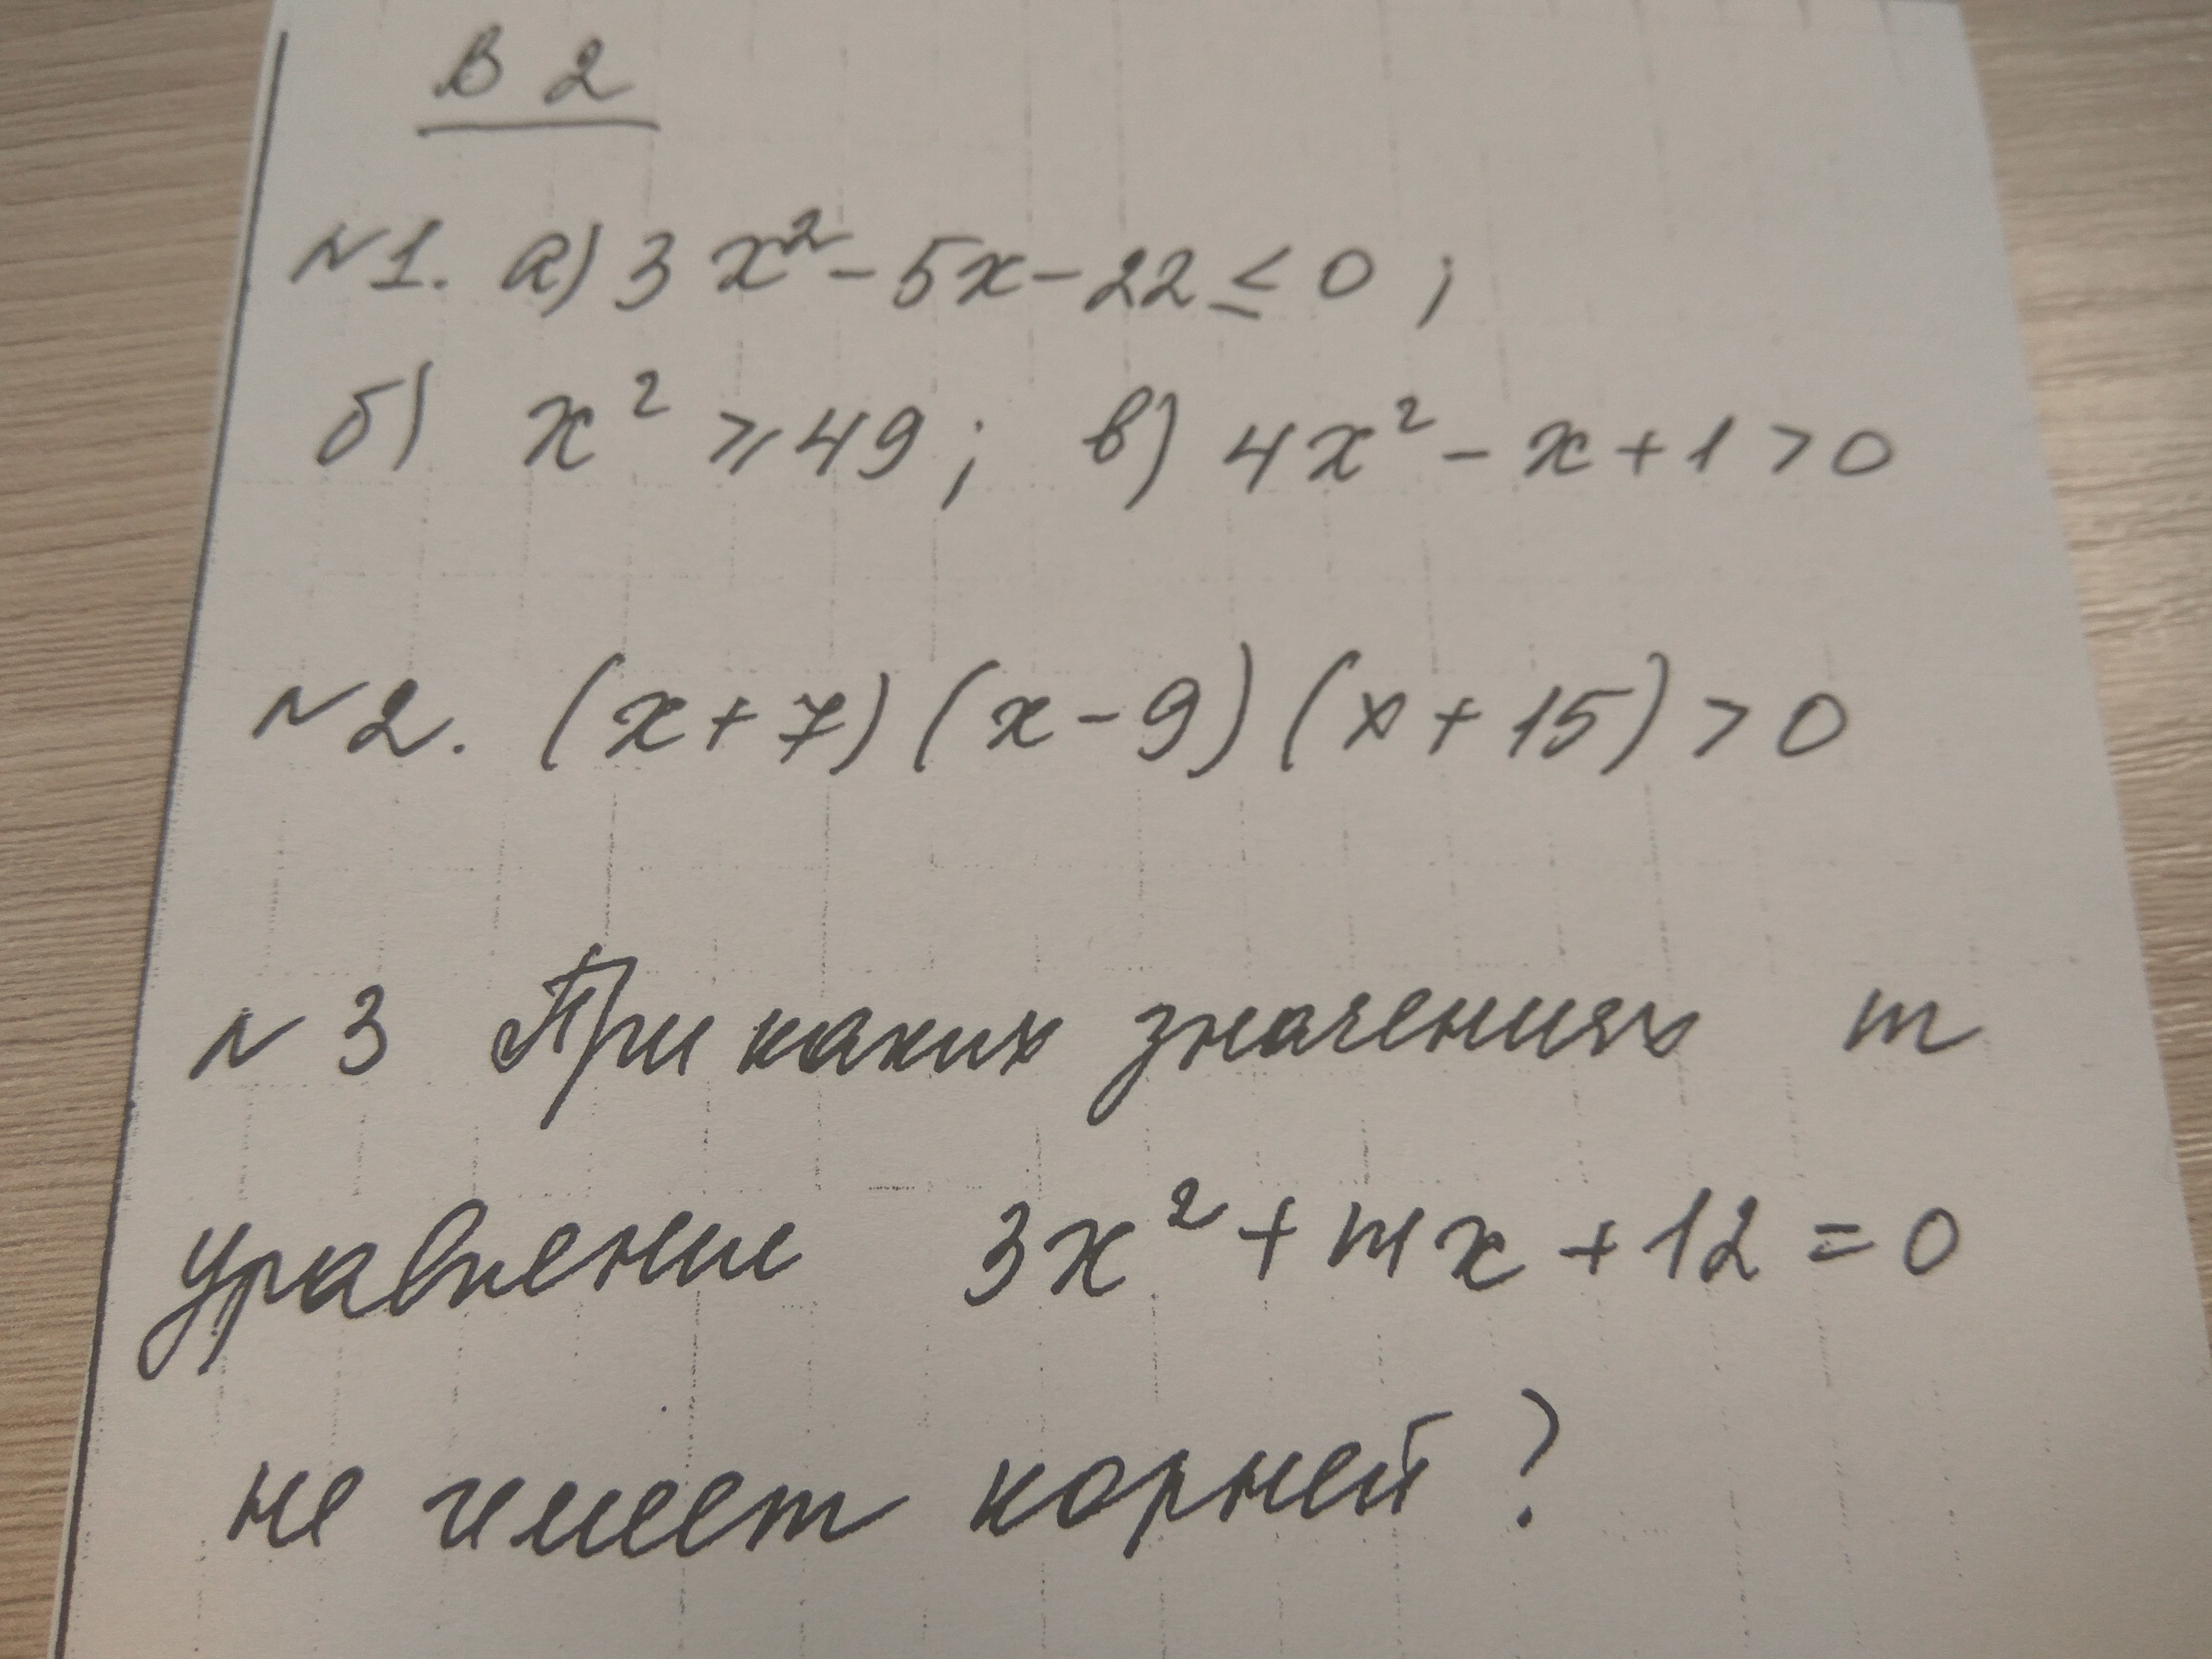 В 2
N1. а) 3x² - 5x - 22 ≤ 0 ;
б) x² ≥ 49 ; в) 4x² - x + 1 > 0
N2. (x + 7) (x - 9) (x + 15) > 0
N3 При каких значениях m
уравнение 3x² + mx + 12 = 0
не имеет корней ?